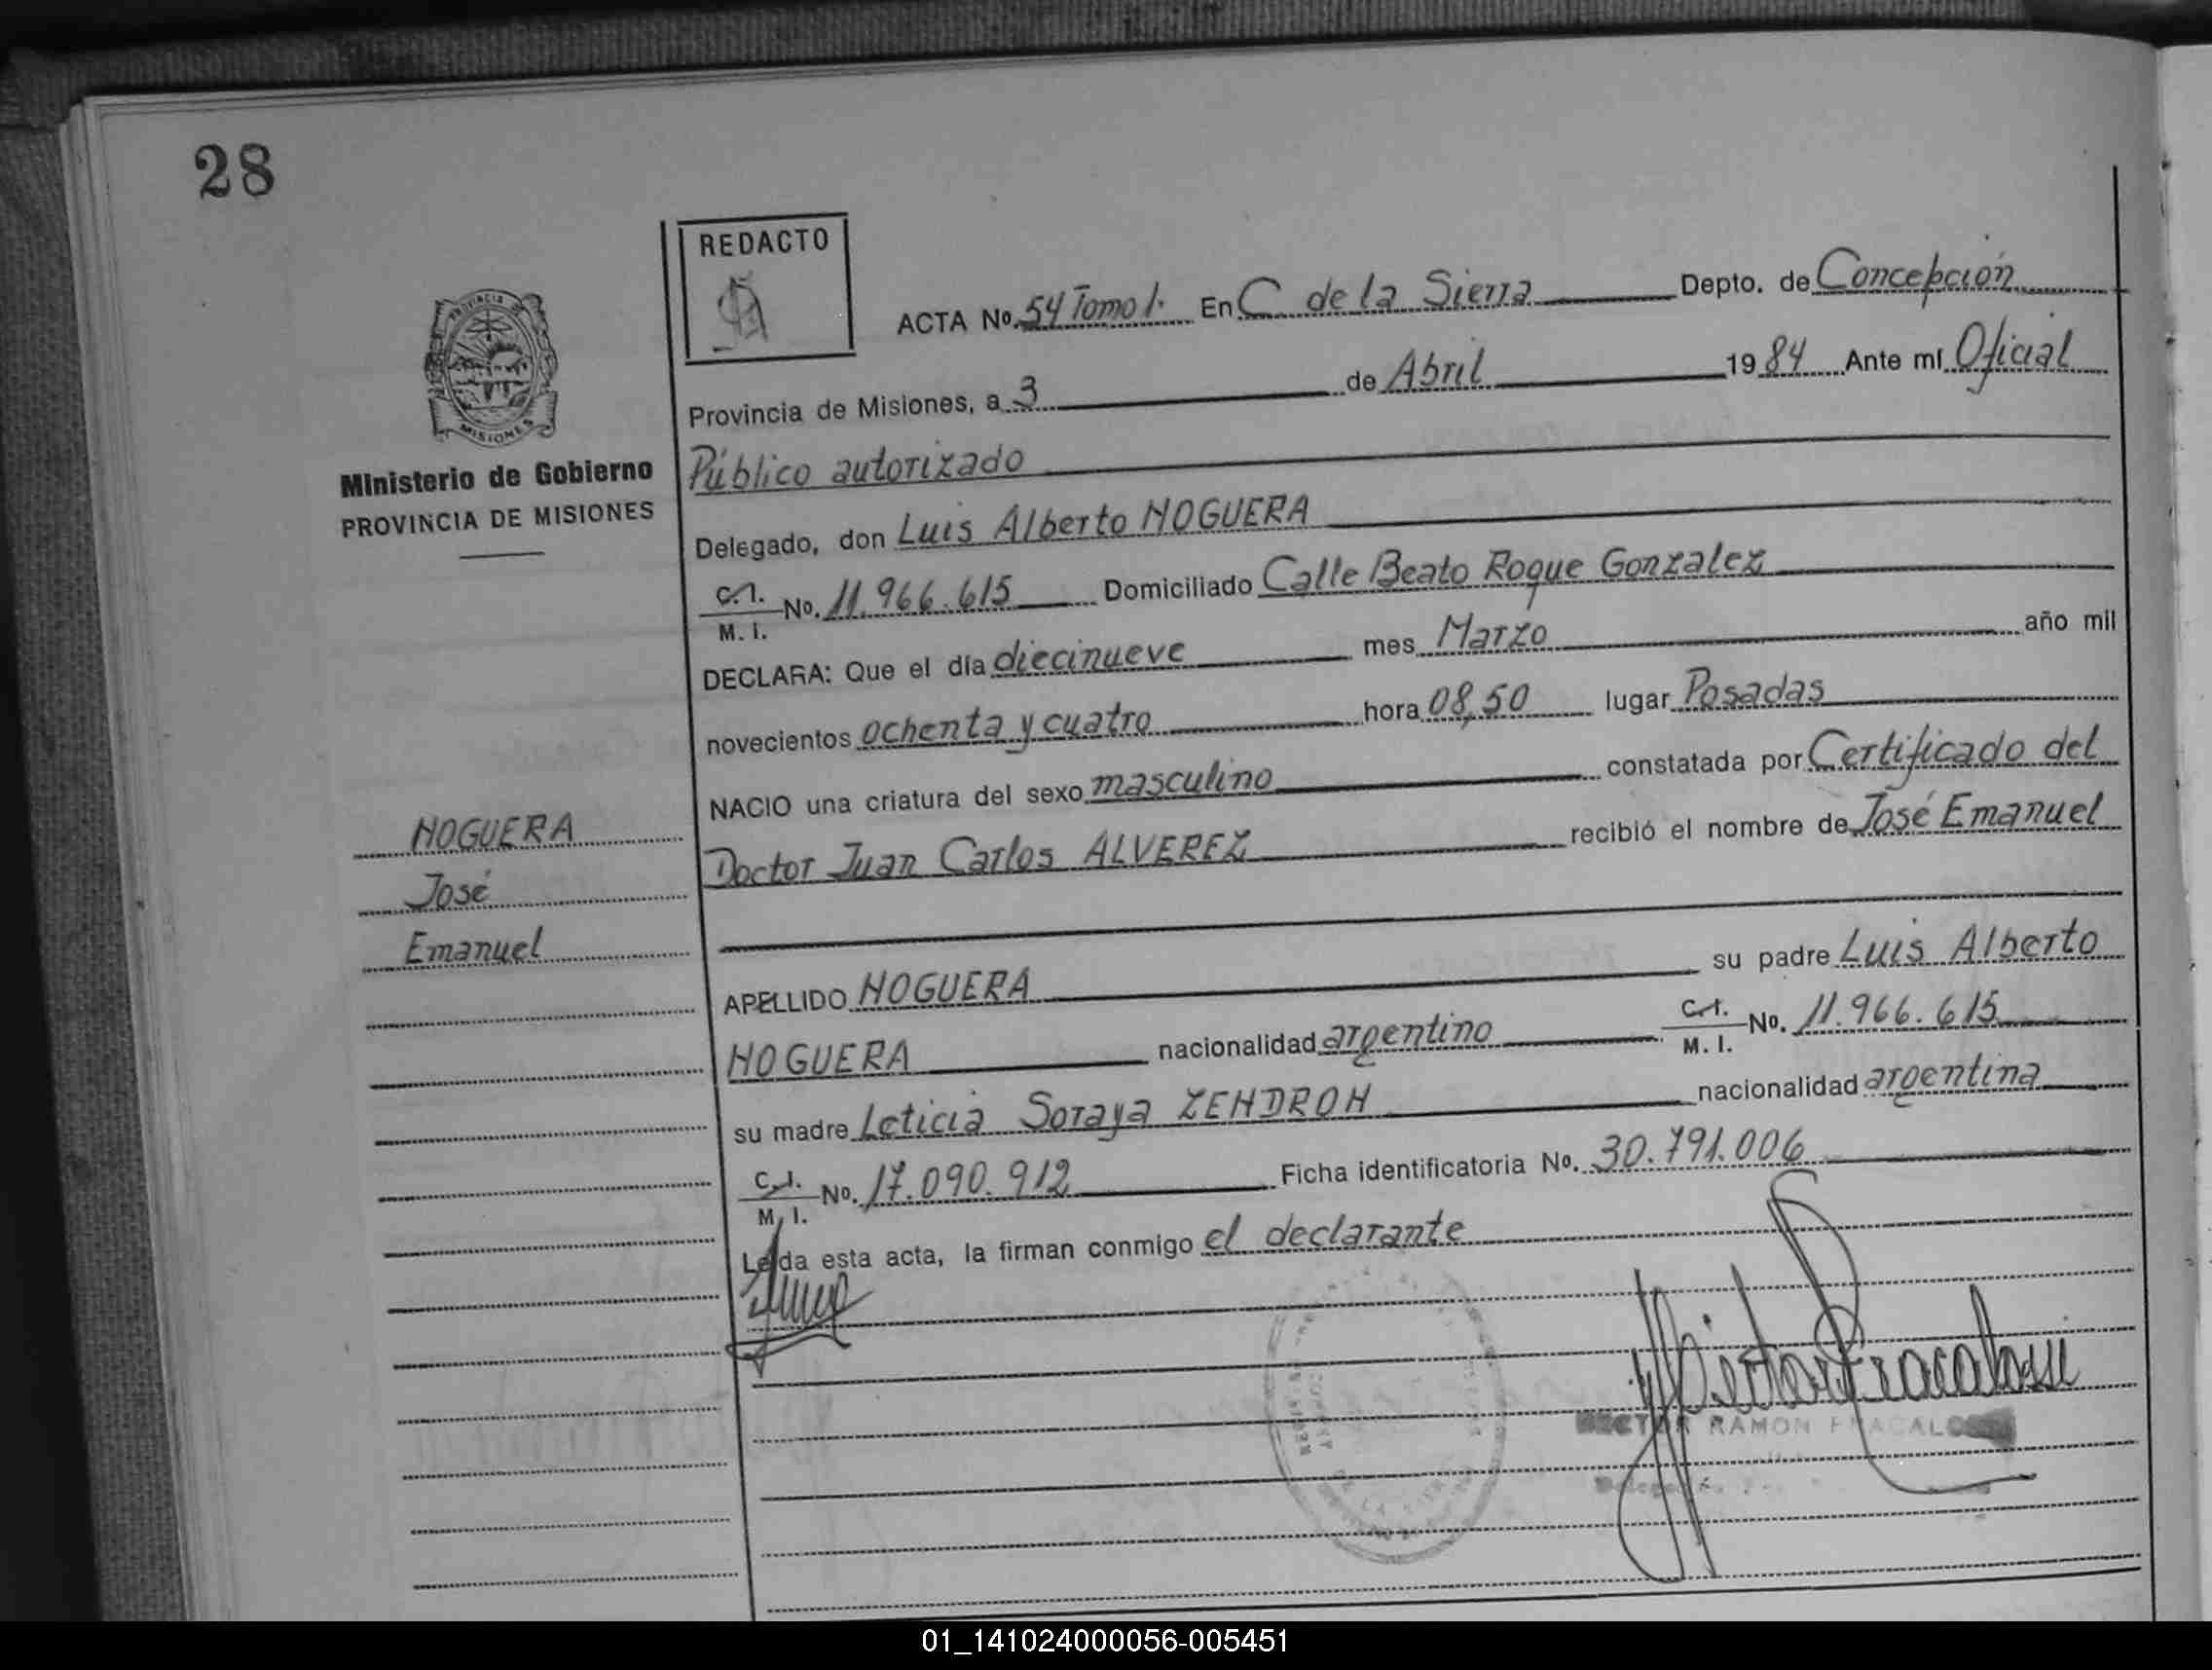 28
REDACTO
ACTA No. 54 Tomo I. En C. de la Sierra Depto. de Concepción
Provincia de Misiones, a 3 de Abril 1984 Ante mí Oficial
PROVINCIA
MISIONES
Ministerio de Gobierno
PROVINCIA DE MISIONES
Público autorizado
Delegado, don Luis Alberto NOGUERA
C. I.
M. I. No. 11.966.615 Domiciliado Calle Beato Roque Gonzalez
DECLARA: Que el día diecinueve mes Marzo año mil
novecientos ochenta y cuatro hora 08,50 lugar Posadas
NACIO una criatura del sexo masculino constatada por Certificado del
Doctor Juan Carlos ALVEREZ recibió el nombre de José Emanuel
NOGUERA
José
Emanuel
APELLIDO NOGUERA su padre Luis Alberto
NOGUERA nacionalidad argentino C. I.
M. I. No. 11.966.615
su madre Leticia Soraya ZENDRON nacionalidad argentina
C. I.
M. I. No. 17.090.912 Ficha identificatoria No. 30.791.006
Leída esta acta, la firman conmigo el declarante
HECTOR RAMON FRACALOSSI
DE LA SIERRA
01_141024000056-005451